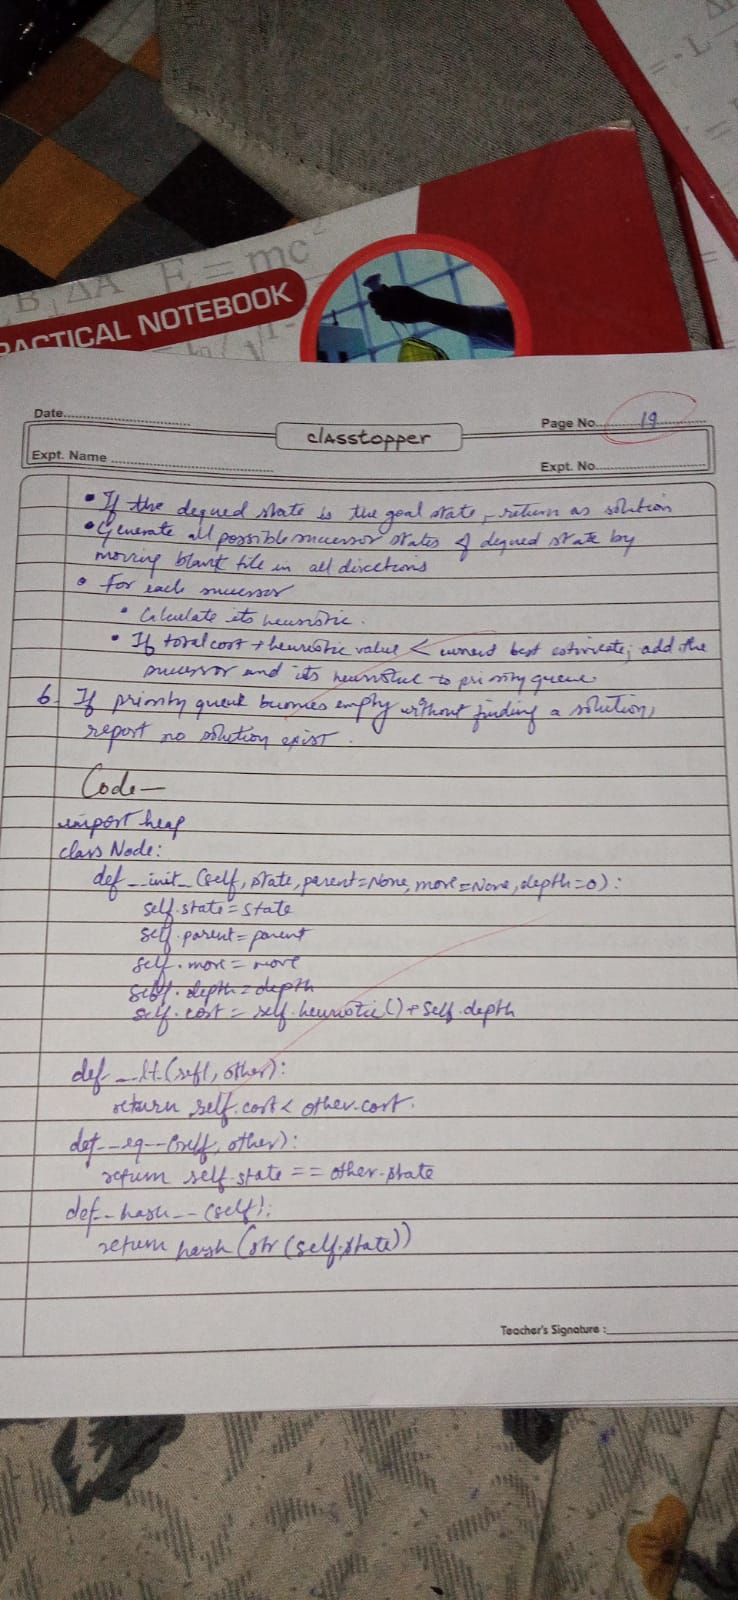 ΔA
= - L
B₁ ΔA E = mc²
PRACTICAL NOTEBOOK
Date
Page No. 19
classtopper
Expt. Name
Expt. No.
• If the dequed state is the goal state, return as solution
• Generate all possible successor states of dequed state by
moving blank tile in all directions
• For each successor
• Calculate its heuristic.
• If total cost + heuristic value < current best estimate; add the
successor and its heuristic to priority queue
6. If priority queue becomes empty without finding a solution,
report no solution exist.
Code—
import heap
class Node:
def __init_ (self, state, parent=None, move=None, depth=0):
self.state = state
self.parent = parent
self.move = move
self.depth = depth
self.cost = self.heuristic() + self.depth
def __lt_(self, other):
return self.cost < other.cost.
def __eq__(self, other):
return self.state == other.state
def __hash__(self):
return hash(str(self.state))
Teacher's Signature :